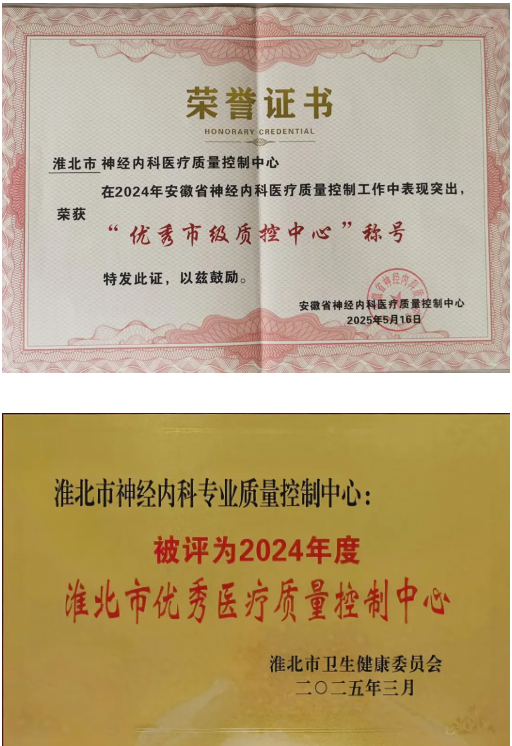 荣誉证书
HONORARY CREDENTIAL
淮北市神经内科医疗质量控制中心
在2024年安徽省神经内科医疗质量控制工作中表现突出，
荣获
“优秀市级质控中心”称号
特发此证，以兹鼓励。
安徽省神经内科医疗质量控制中心
2025年5月16日
淮北市神经内科专业质量控制中心：
被评为2024年度
淮北市优秀医疗质量控制中心
淮北市卫生健康委员会
二〇二五年三月